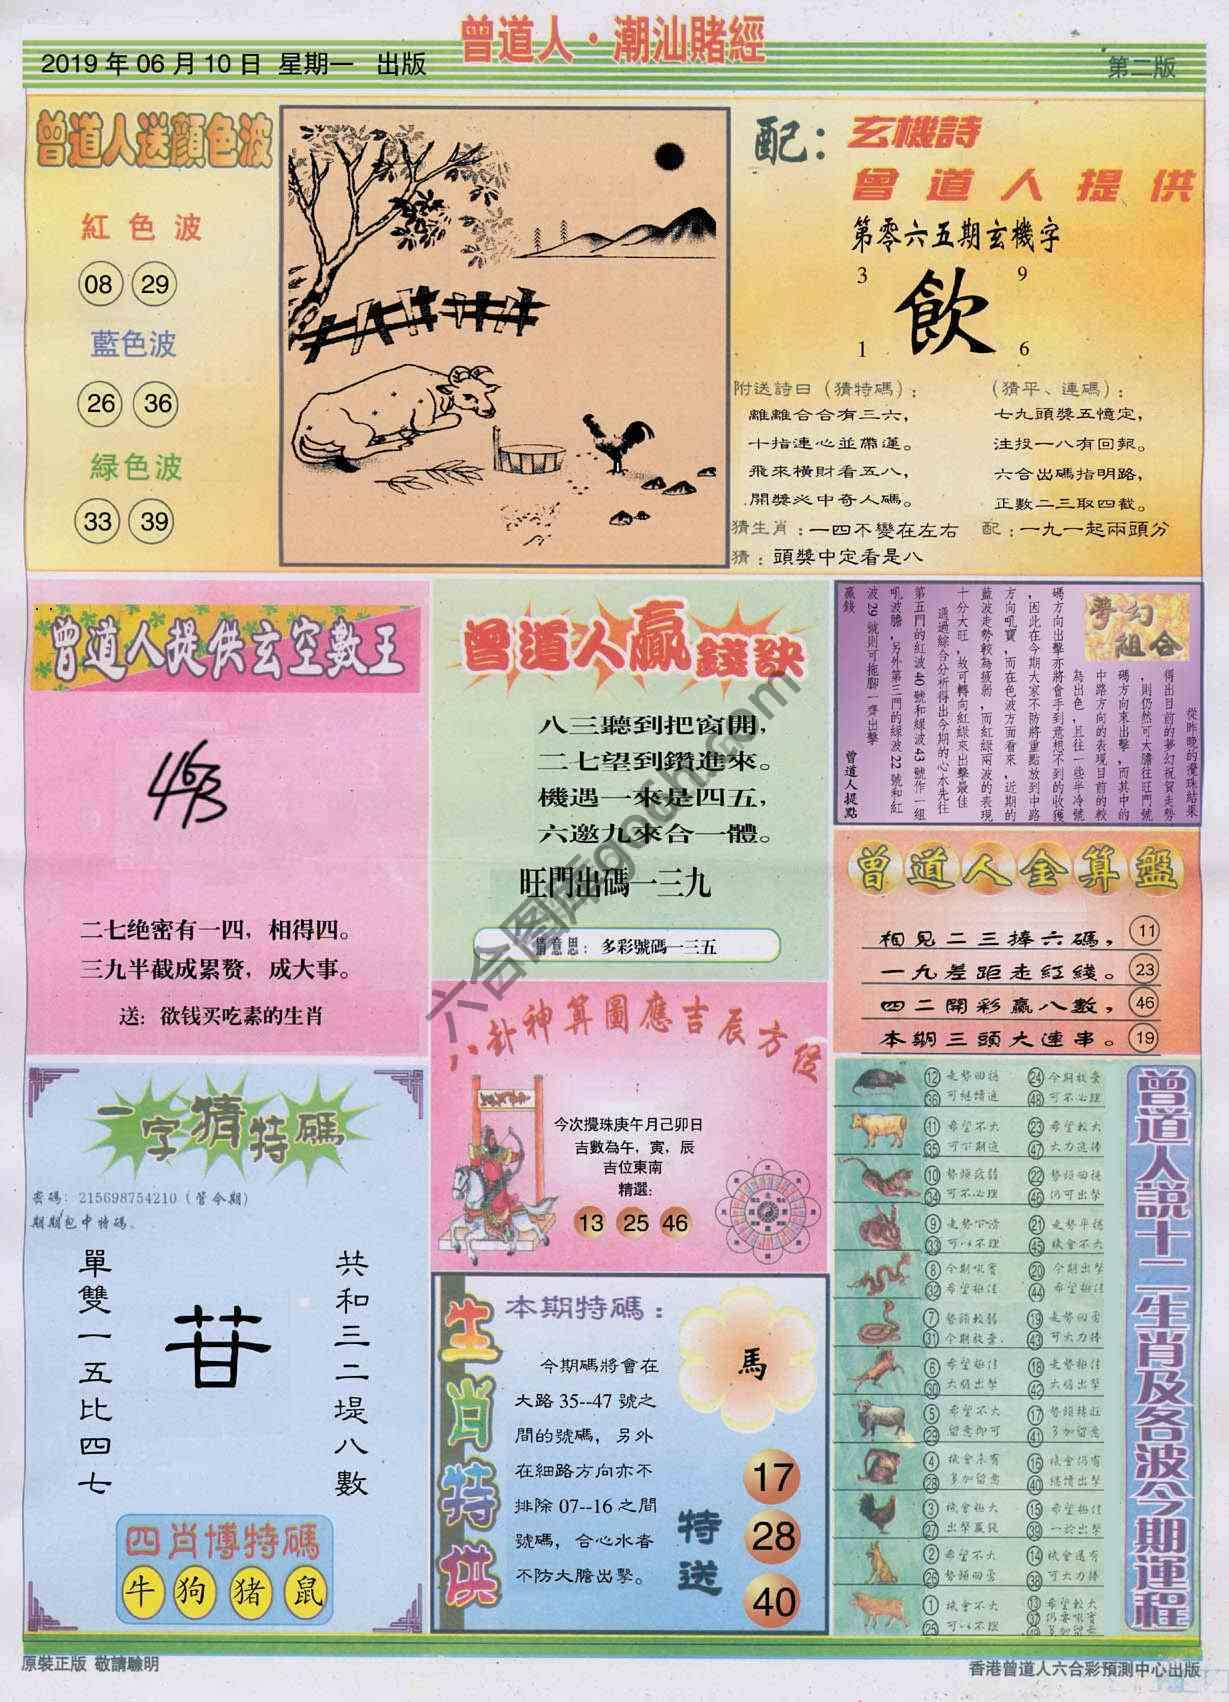 曾道人·潮汕賭經
2019年06月10日 星期一 出版
第二版
曾道人送顔色波
紅色波
08 29
藍色波
26 36
緑色波
33 39
配：玄機詩
曾道人提供
第零六五期玄機字
3 9
飲
1 6
附送詩曰（猜特碼）：
離離合合有三六，
十指連心並帶運。
飛來橫財看五八，
開獎必中奇人碼。
（猜平、連碼）：
七九頭獎五憶定，
注投一八有回報。
六合出碼指明路，
正數二三取四截。
猜生肖：一四不變在左右
配：一九一起兩頭分
猜：頭獎中定看是八
曾道人提供玄空數王
463
二七绝密有一四，相得四。
三九半截成累赘，成大事。
送：欲钱买吃素的生肖
曾道人贏錢訣
八三聽到把窗開，
二七望到鑽進來。
機遇一來是四五，
六邀九來合一體。
旺門出碼一三九
猜意思：多彩號碼一三五
夢幻組合
從昨晚的攪珠結果
得出目前的夢幻祝賀走勢
，則仍然可大膽往旺門號
碼方向東出擊，而其中的
中路方向的表現目前的較
為出色，且往一些半冷號
碼方向出擊亦將會手到意想不到的收獲
，因此在今期大家不防將重點放到中路
方向吼寶，而在色波方面看來，近期的
藍波走勢較為疲弱，而紅綠兩波的表現
十分大旺，故可轉向紅綠來出擊最佳
通過綜合分析得出今期的心水先往
第五門的紅波40號和緑波43號作一組
吼波膽，另外第三門的綠波22號和紅
波29號則可拖腳一齊出擊
贏錢
曾道人提點
曾道人金算盤
相見二三捧六碼， 11
一九差距走紅綫。 23
四二開彩贏八數， 46
本期三頭大連串。 19
八卦神算圖應吉辰方位
今次攪珠庚午月己卯日
吉數為午，寅，辰
吉位東南
精選：
13 25 46
一字猜特碼
密碼：215698754210（管今期）
期期包中特碼。
單雙一五比四七
苷
共和三二堤八數
四肖博特碼
牛 狗 猪 鼠
生肖特供
本期特碼：
今期碼將會在
大路35--47號之
間的號碼，另外
在細路方向亦不
排除07--16之間
號碼，合心水者
不防大膽出擊。
馬
特送
17
28
40
曾道人説十二生肖及各波今期運程
12 走勢回穩 24 今期放棄
36 可繼續追 48 可不必理
11 希望不大 23 希望較大
35 可不期追 47 大力追捧
10 勢頭疲弱 22 勢頭回穩
34 可不必理 46 仍可出擊
9 走勢下滑 21 走勢平穩
33 可以不理 45 機會不大
8 今期吼實 20 今期出擊
32 希望極佳 44 希望極佳
7 勢頭較弱 19 走勢回勇
31 今期放棄 43 可大力捧
6 希望極佳 18 走勢極佳
30 大膽出擊 42 大膽出擊
5 希望不大 17 勢頭轉旺
29 留意即可 41 多加留意
4 機會未有 16 機會仍有
28 多加留意 40 繼續出擊
3 機會極大 15 希望極佳
27 出擊贏錢 39 一於出擊
2 希望不大 14 機會還有
26 勢頭回勇 38 可大力捧
1 機會不大 13 希望較大
25 可以不理 37 仍要吼實
49 多加留意
原裝正版 敬請驗明
香港曾道人六合彩預測中心出版
六合图库go6h.com